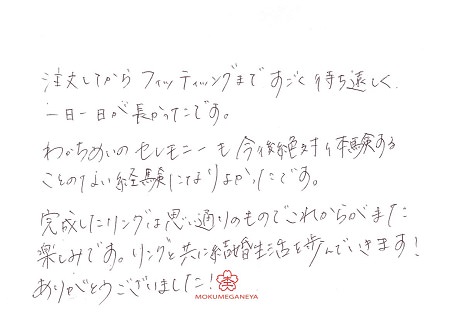 注文してからフィッティングまですごく待ち遠しく、
一日一日が長かったです。
わかちあいのセレモニーも今後絶対体験する
ことのない経験になりよかったです。
完成したリングは思い通りのものでこれからがまた
楽しみです。リングと共に結婚生活を歩んでいきます！
ありがとうございました！
MOKUMEGANEYA